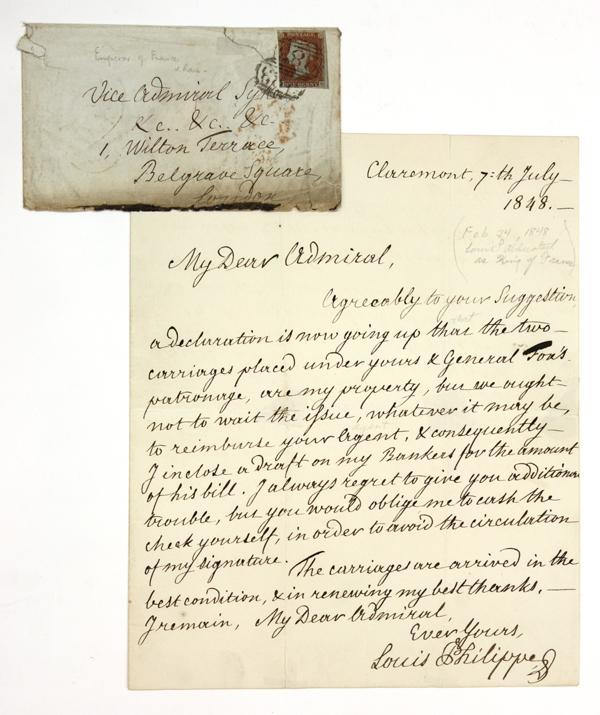 Emperor of France
POSTAGE
ONE PENNY
Vice Admiral
&c.. &c. &c
1, Wilton Terrace,
Belgrave Square,
London
Claremont, 7:th July
1848.—
(Feb 24, 1848
Louis abdicated
as King of France)
My Dear Admiral,
Agreeably to your Suggestion,
a declaration is now going up that the two—
carriages placed under yours & General Fox's
patronage, are my property, but we ought—
not to wait the issue, whatever it may be,
to reimburse your Agent, & consequently—
I inclose a draft on my Bankers for the amount
of his bill. I always regret to give you additional
trouble, but you would oblige me to cash the
check yourself, in order to avoid the circulation
of my signature. The carriages are arrived in the
best condition, & in renewing my best thanks,—
I remain, My Dear Admiral,
Ever Yours,
Louis Philippe